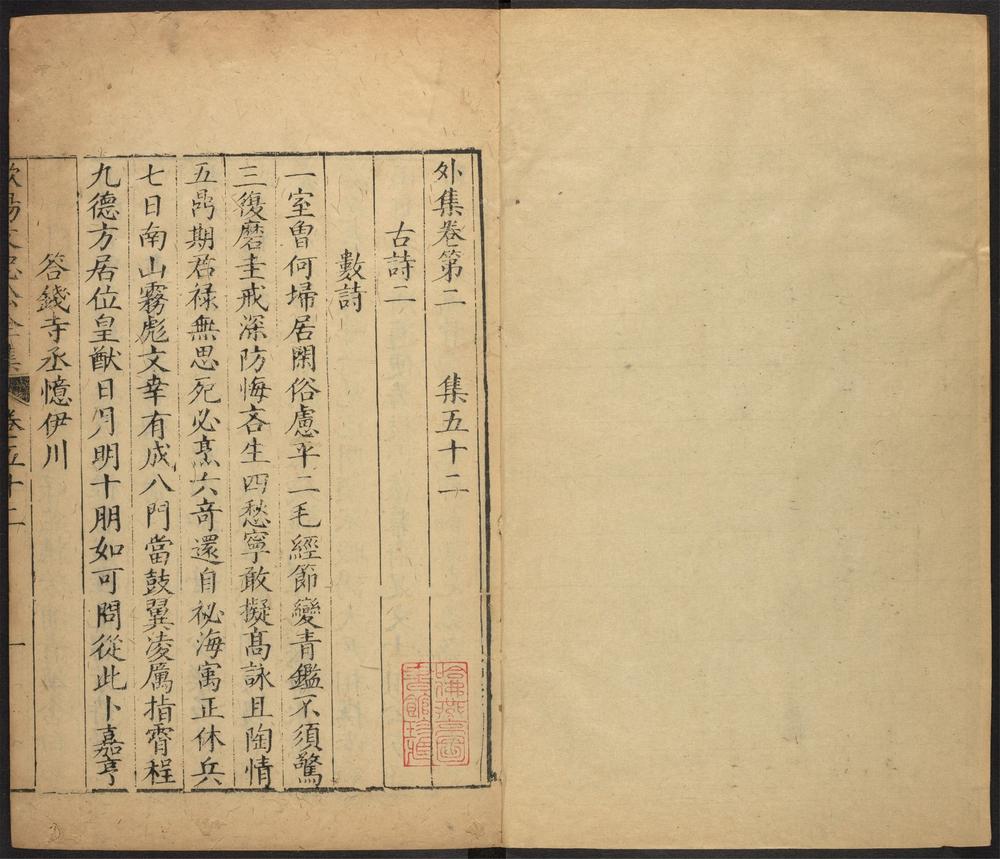 外集卷第二　集五十二
古詩二
數詩
一室曾何埽居閑俗慮平二毛經節變青鑑不須驚
三復磨圭戒深防悔吝生四愁寧敢擬高詠且陶情
五鼎期君禄無思死必烹六奇還自祕海寓正休兵
七日南山霧彪文幸有成八門當鼓翼凌厲指霄程
九德方居位皇猷日月明十朋如可問從此卜嘉亨
答錢寺丞憶伊川
歐陽文忠公全集　卷五十二　一
哈佛燕京圖書館珍藏